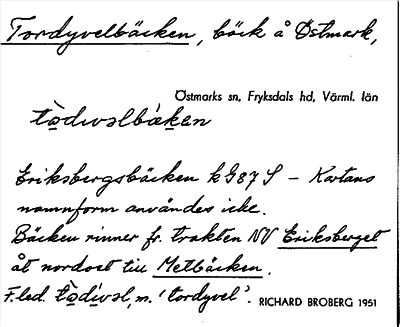 Tordyvelbäcken, bäck å Östmark,
Östmarks sn, Fryksdals hd, Värml. län
tòdıvəlbä̀ken
Eriksbergsbäcken kG87S – Kartans
namnform användes icke.
Bäcken rinner fr. trakten NV Eriksberget
åt nordost till Metbäcken.
F.led. tòdivəl, m. 'tordyvel'.
RICHARD BROBERG 1951